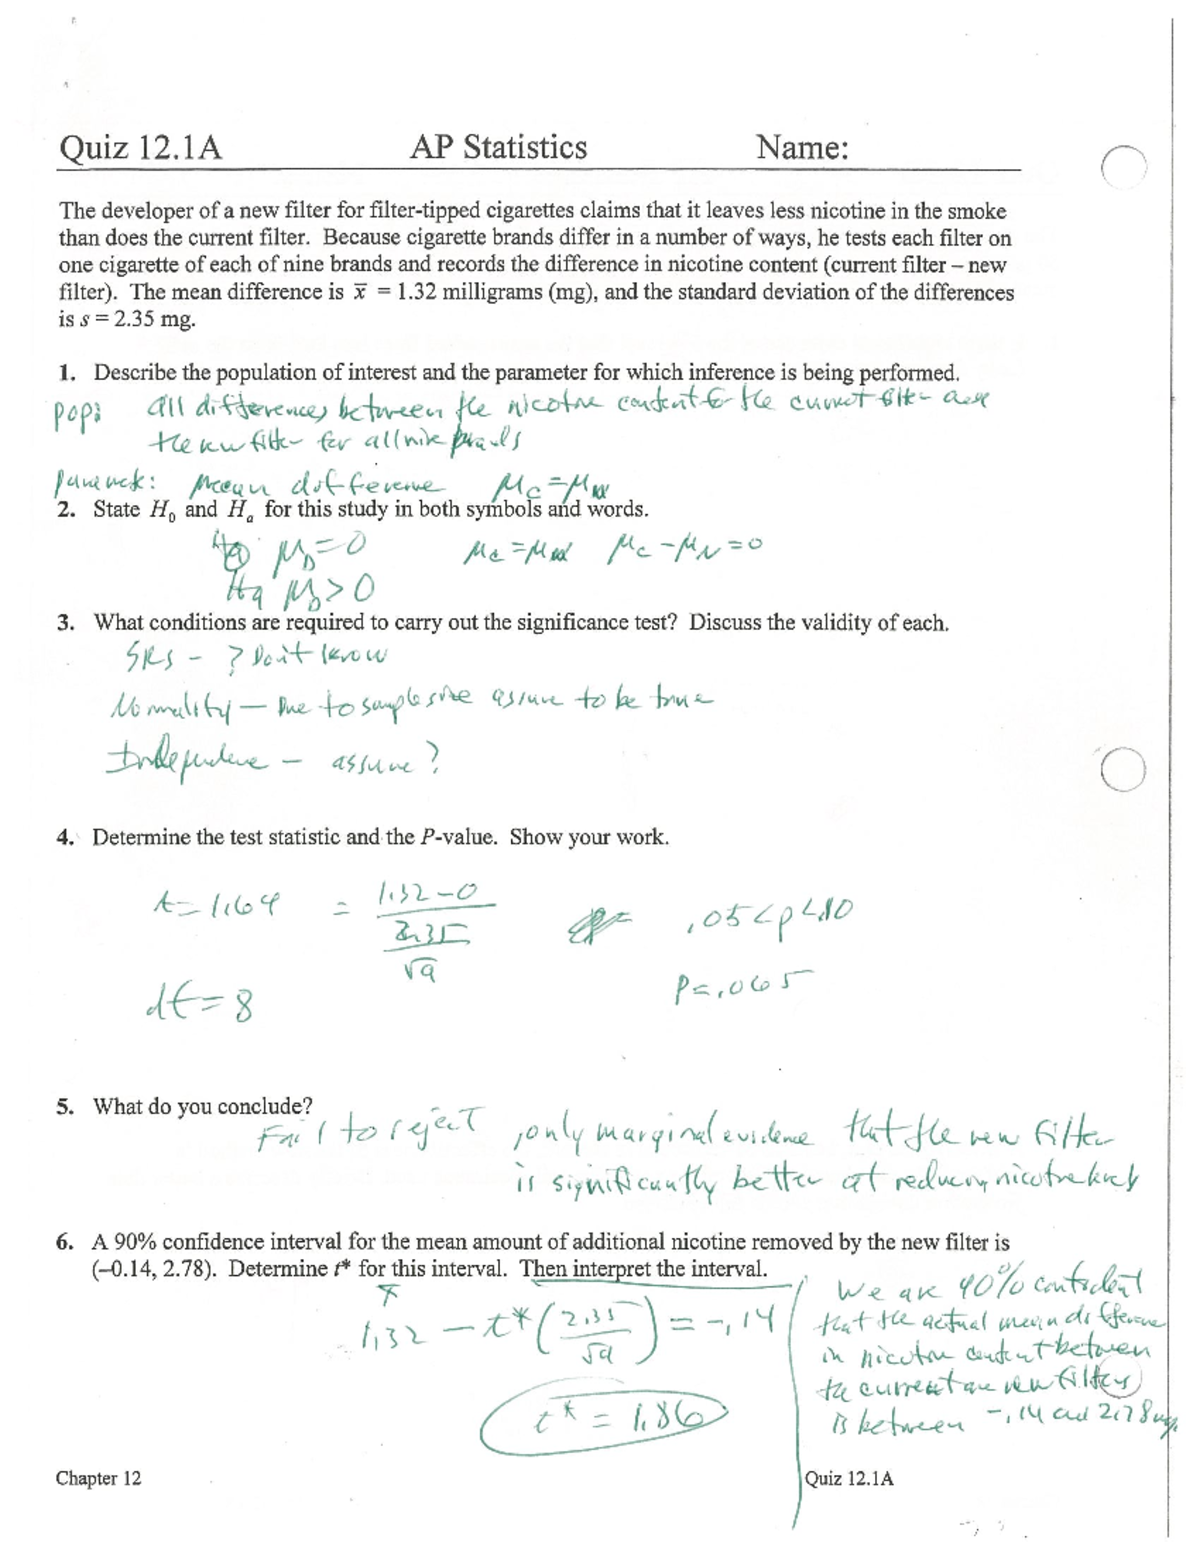 Quiz 12.1A AP Statistics Name:
The developer of a new filter for filter-tipped cigarettes claims that it leaves less nicotine in the smoke
than does the current filter. Because cigarette brands differ in a number of ways, he tests each filter on
one cigarette of each of nine brands and records the difference in nicotine content (current filter – new
filter). The mean difference is x̄ = 1.32 milligrams (mg), and the standard deviation of the differences
is s = 2.35 mg.
1. Describe the population of interest and the parameter for which inference is being performed.
pop: all differences between the nicotine content for the current filter and
the new filter for all nine brands
Mean difference μC = μN
2. State H₀ and Hₐ for this study in both symbols and words.
H₀ μD = 0 μC = μN μC − μN = 0
Ha μD > 0
3. What conditions are required to carry out the significance test? Discuss the validity of each.
SRS - ? Don't know
Normality - Due to sample size assume to be true
Independence - assume?
4. Determine the test statistic and the P-value. Show your work.
t = 1.69 = (1.32 - 0) / (2.35/√9) .05 < p < .10
df = 8 P = .065
5. What do you conclude?
Fail to reject, only marginal evidence that the new filter
is significantly better at reducing nicotine
6. A 90% confidence interval for the mean amount of additional nicotine removed by the new filter is
(–0.14, 2.78). Determine t* for this interval. Then interpret the interval.
1.32 - t* (2.35/√9) = -.14
t* = 1.86
We are 90% confident
that the actual mean difference
in nicotine content between
the current and new filters
is between -.14 and 2.78 mg.
Chapter 12 Quiz 12.1A